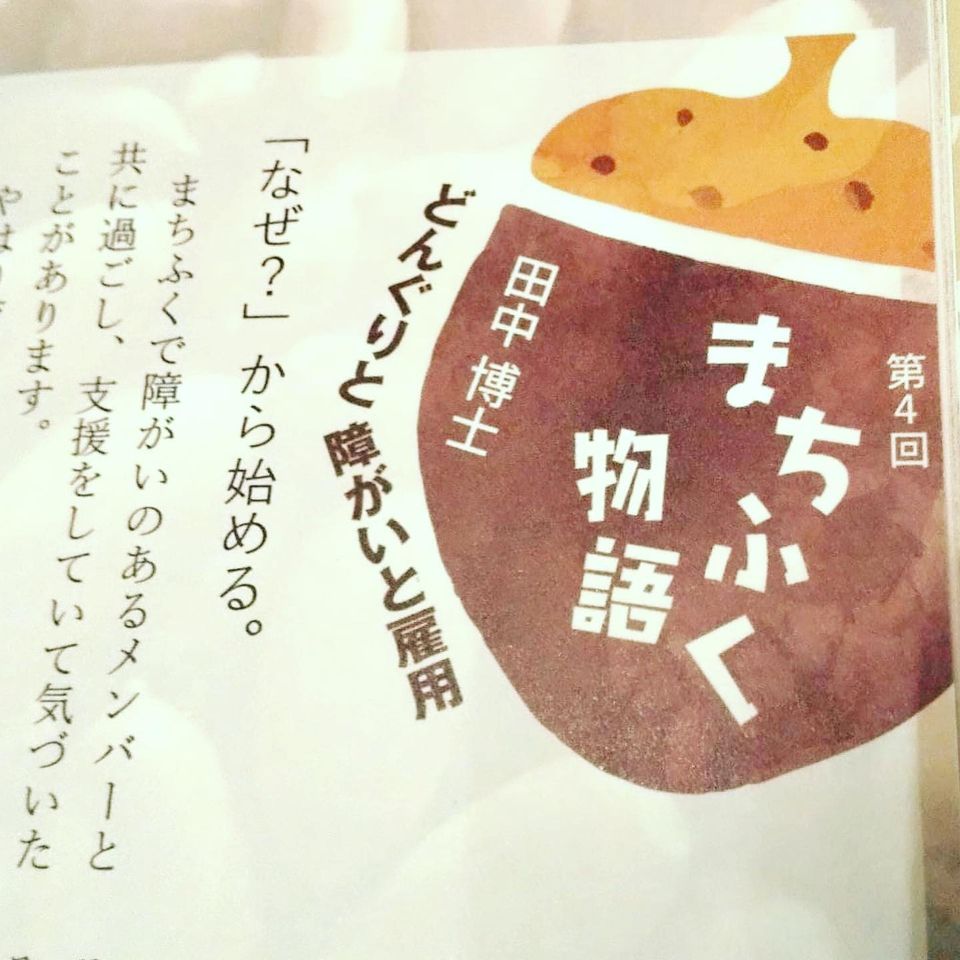 第4回
まちふく
物語
田中 博士
どんぐりと障がいと雇用
「なぜ？」から始める。
まちふくで障がいのあるメンバーと
共に過ごし、支援をしていて気づいた
ことがあります。